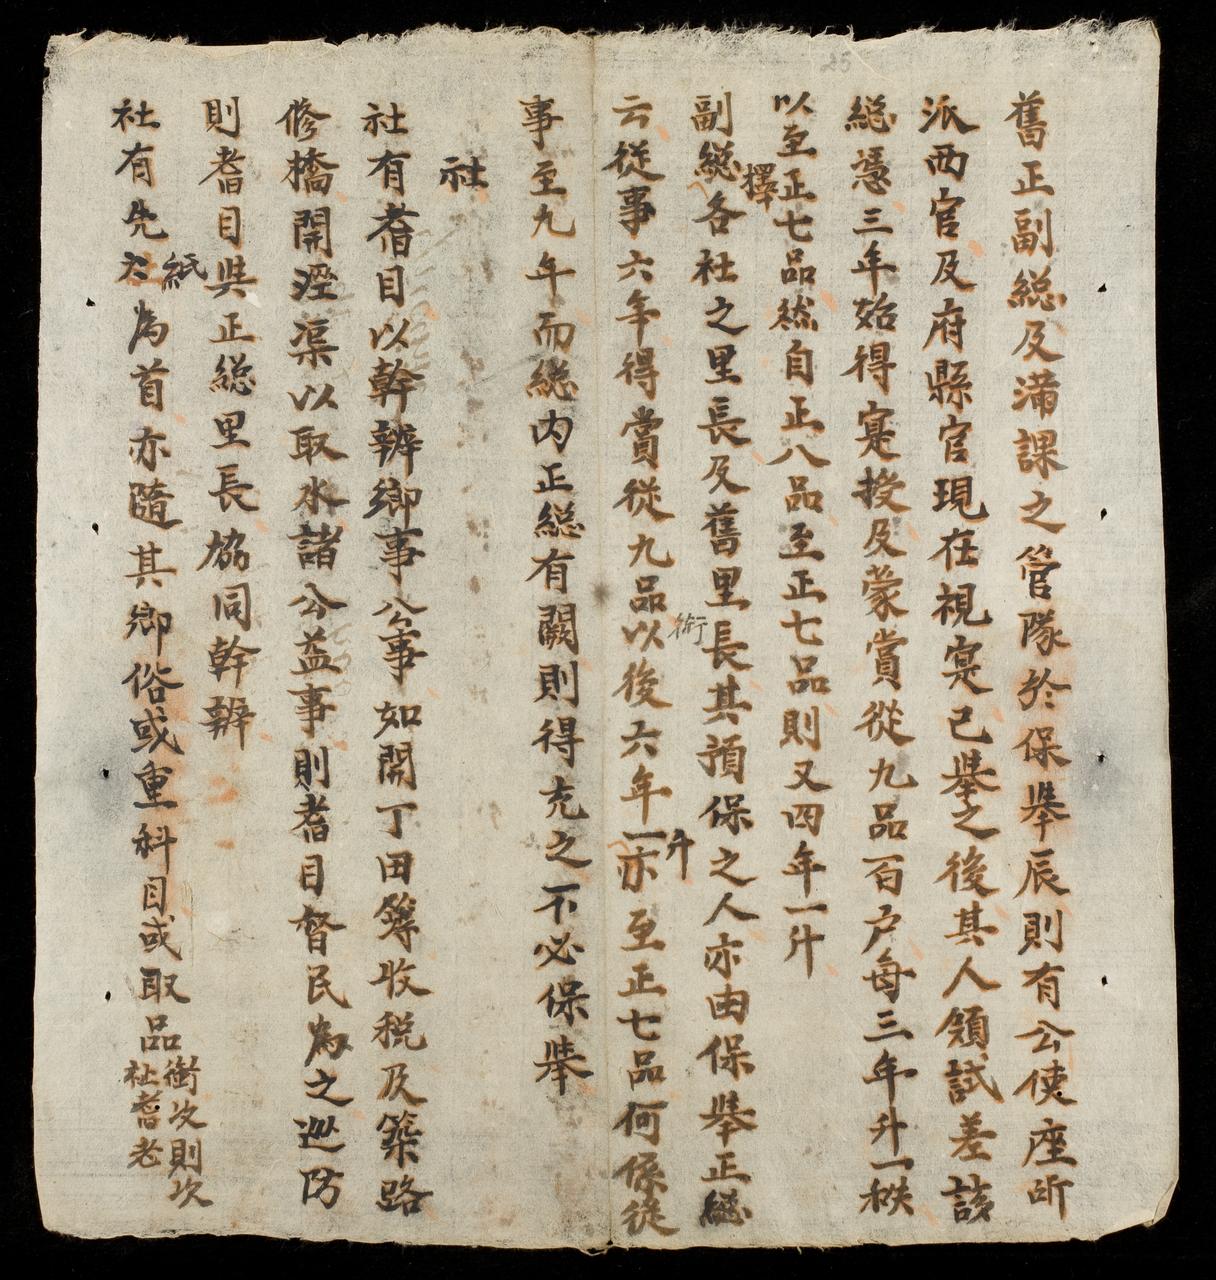 25
舊正副総及滿課之管隊於保舉辰則有公使座所
派西官及府縣官現在視寔已舉之後其人領試差該
総憑三年始得寔授及蒙賞從九品百户每三年升一秩
以至正七品然自正八品至正七品則又四年一升
擇
副総各社之里長及舊里長其預保之人亦由保舉正総
銜
云從事六年得賞從九品以後六年一亦至正七品何係從
升
事至九年而総内正総有闕則得充之不必保舉
社
社有耆目以幹辦鄉事公事如開丁田簿收税及築路
修橋開溼渠以取水諸公益事則耆目督民為之巡防
則耆目與正総里長協同幹辦
紙
社有先為首亦隨其鄉俗或重科目或取品銜次則次
社耆老